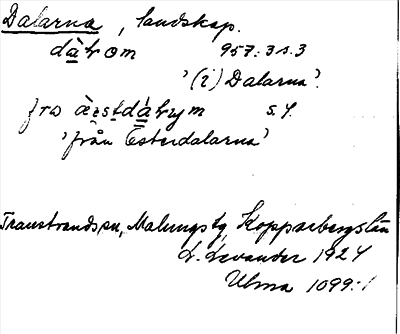 Dalarna, landskap.
dàl̥om 957: 3 s. 3
'(i) Dalarna'.
frɷ
s. 4.
'från Österdalarna'
Transtrands sn, Malungs tg, Kopparbergs län
L. Levander 1924
Ulma 1099:1